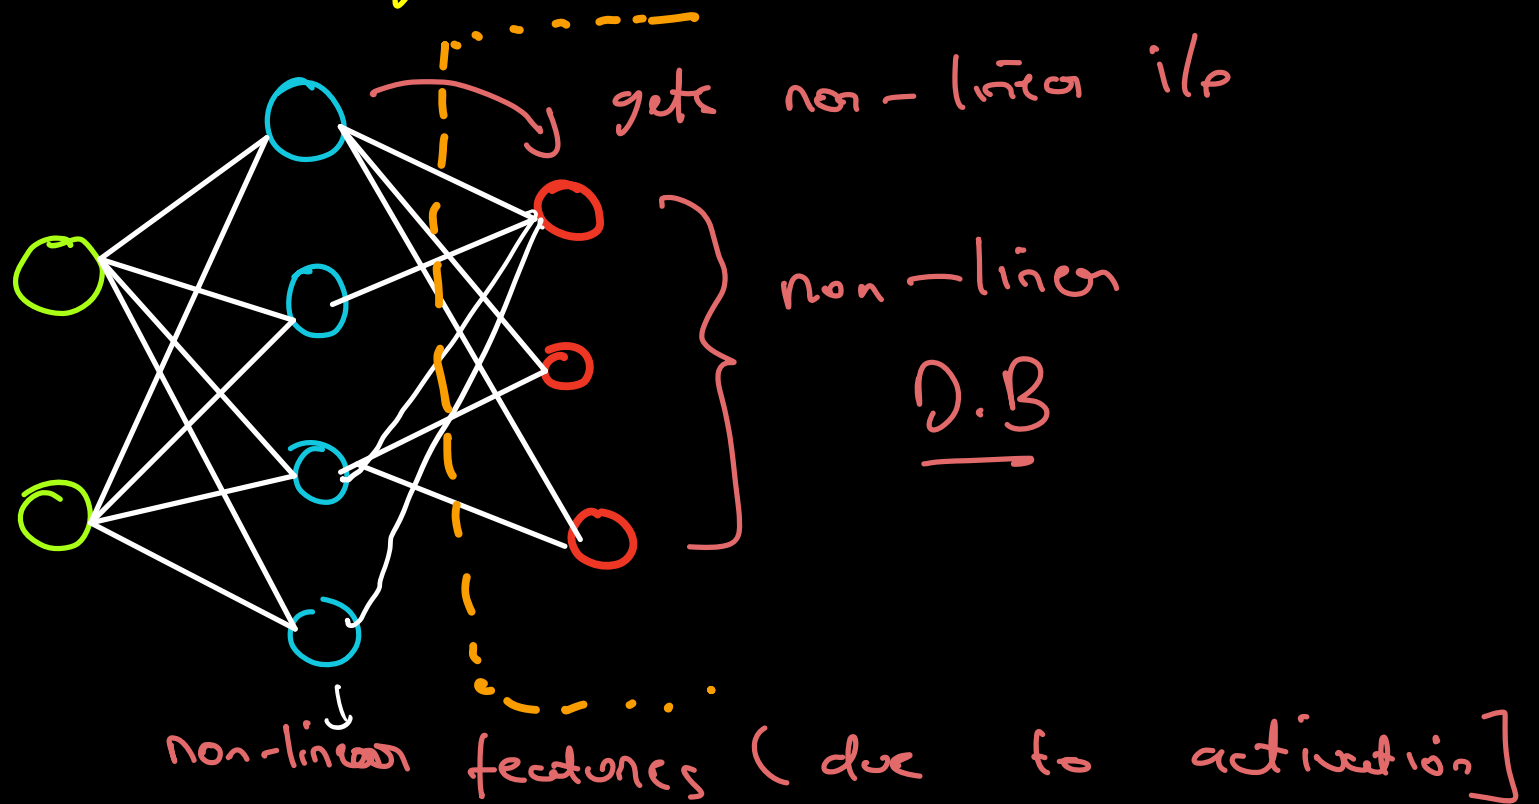 gets non-linear i/p
non-linear
D.B
non-linear features (due to activation]